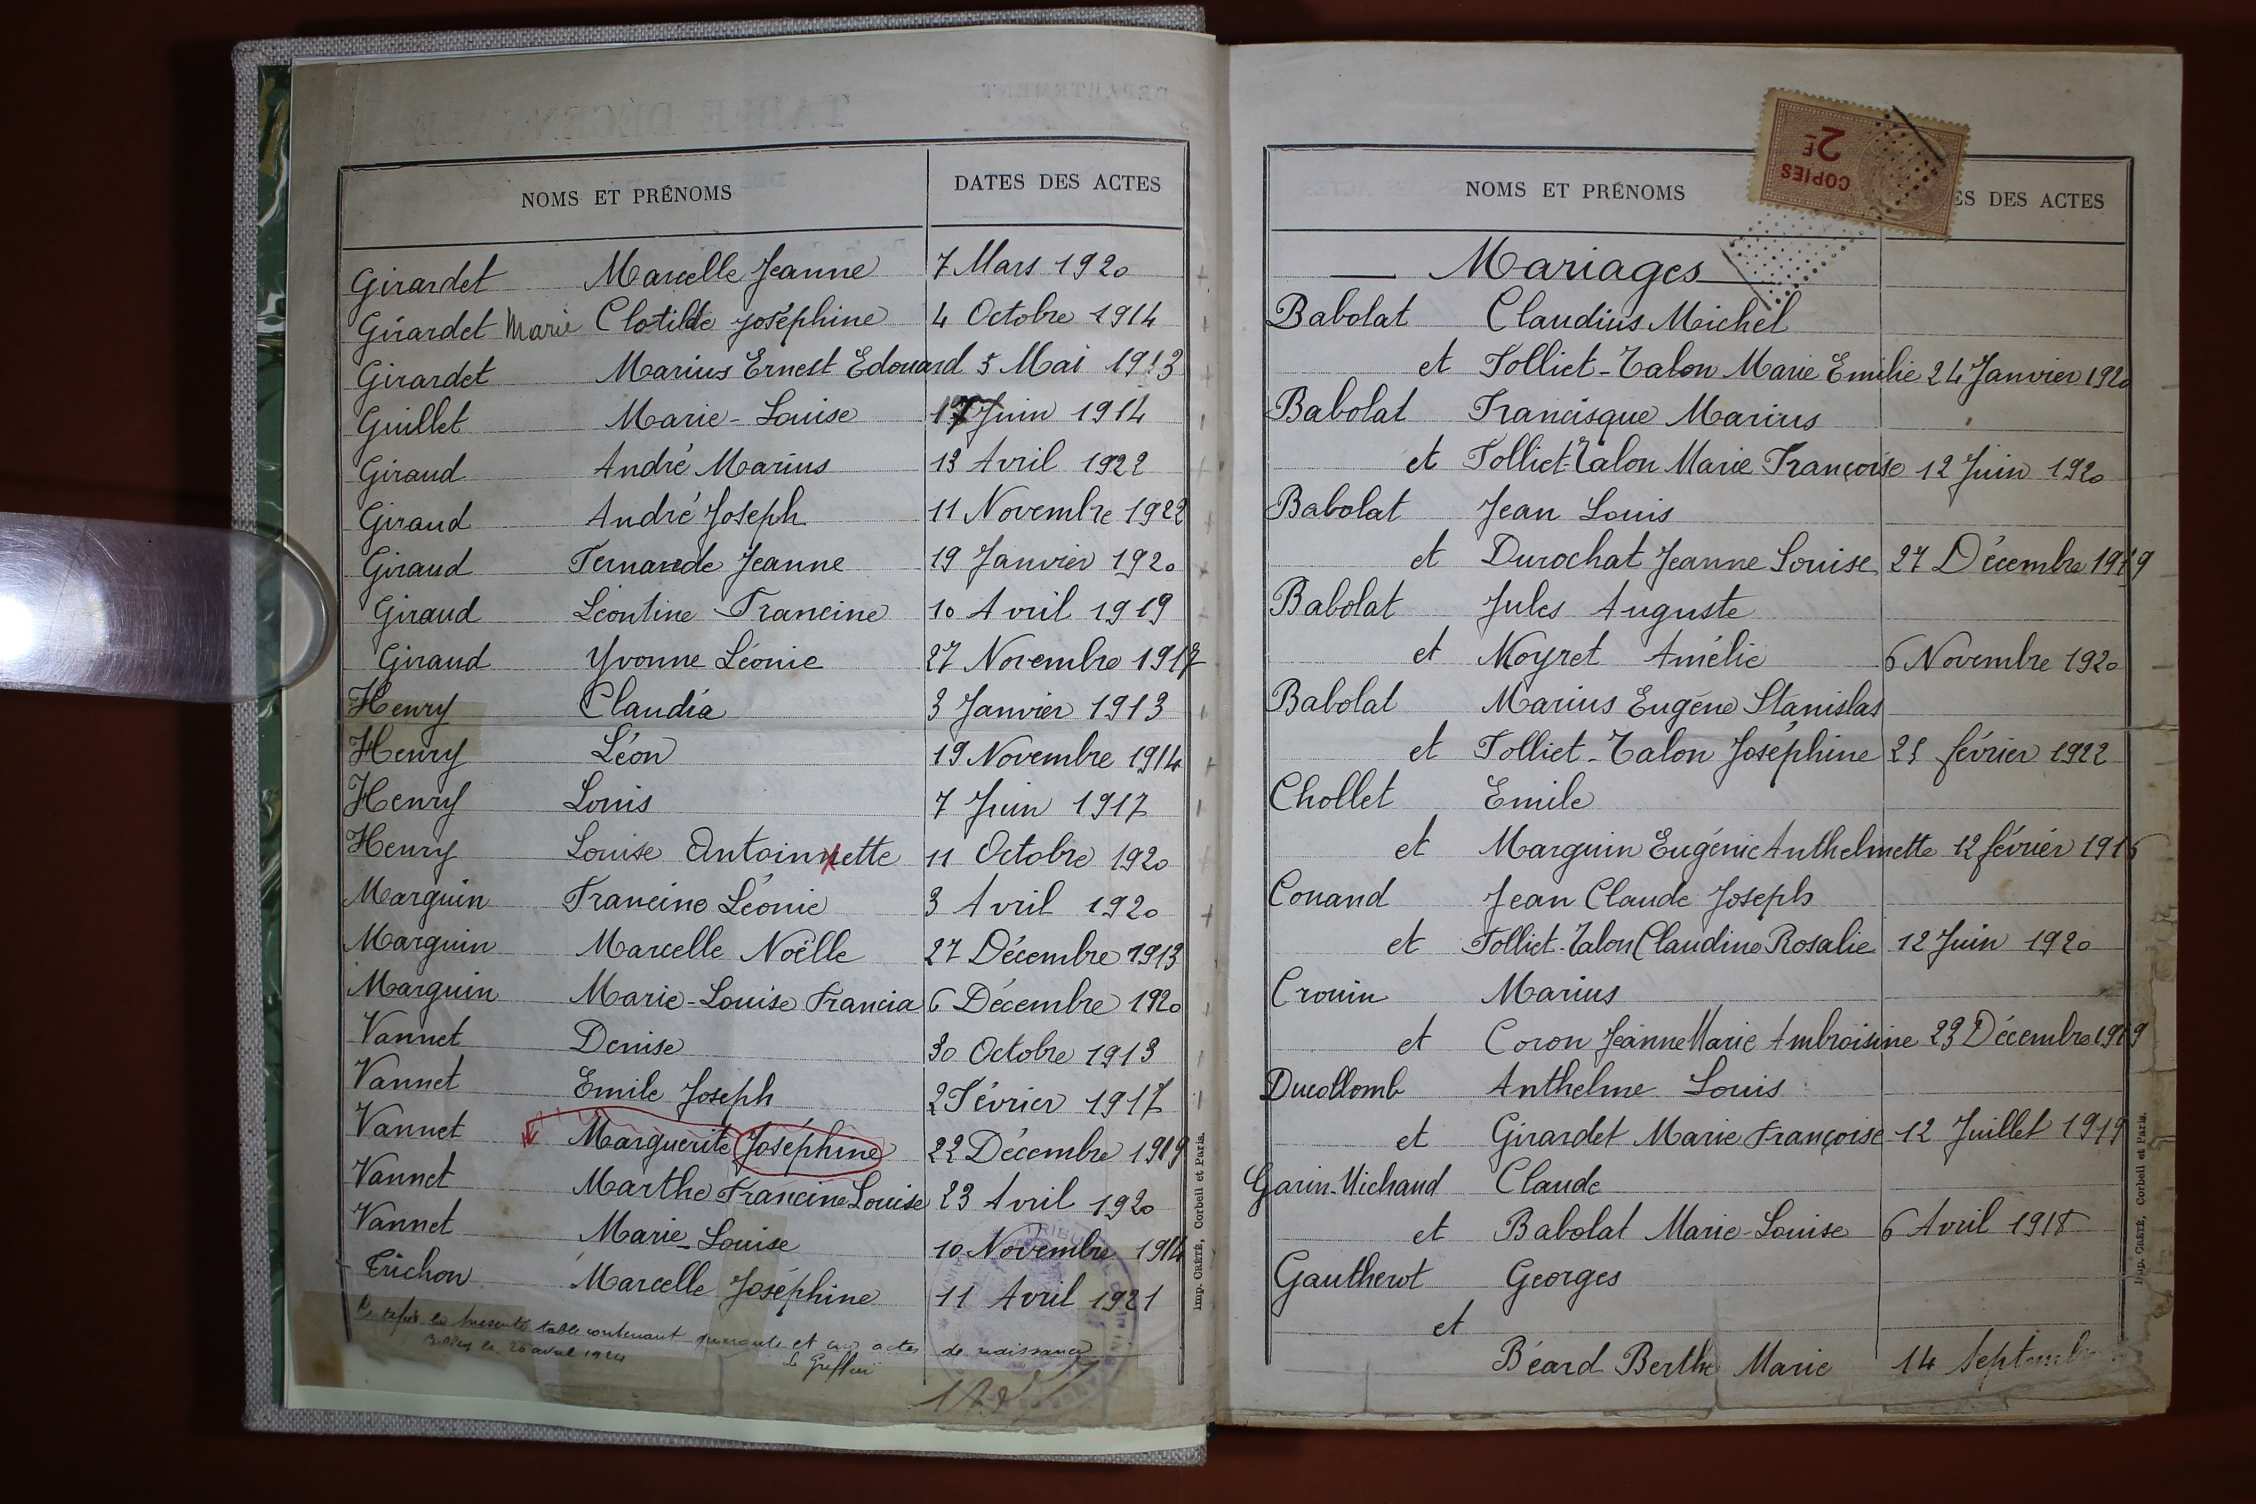 NOMS ET PRÉNOMS DATES DES ACTES
Girardet Marcelle Jeanne 7 Mars 1920
Girardet Marie Clotilde Joséphine 4 Octobre 1914
Girardet Marius Ernest Edouard 5 Mai 1913
Guillet Marie-Louise 17 Juin 1914
Giraud André Marius 13 Avril 1922
Giraud André Joseph 11 Novembre 1922
Giraud Fernande Jeanne 19 Janvier 1920
Giraud Léontine Francine 10 Avril 1919
Giraud Yvonne Léonie 27 Novembre 1917
Henry Claudia 3 Janvier 1913
Henry Léon 19 Novembre 1914
Henry Louis 7 Juin 1917
Henry Louise Antoinette 11 Octobre 1920
Marguin Francine Léonie 3 Avril 1920
Marguin Marcelle Noëlle 27 Décembre 1913
Marguin Marie-Louise Francia 6 Décembre 1920
Vannet Denise 30 Octobre 1913
Vannet Emile Joseph 2 Février 1917
Vannet Marguerite Joséphine 22 Décembre 1919
Vannet Marthe Francine Louise 23 Avril 1920
Vannet Marie-Louise 10 Novembre 1914
Tuchon Marcelle Joséphine 11 Avril 1921
la présente table contenant quarante et un actes de naissance
Belley le 26 avril 1924 Le Greffier
Imp. CRÉTÉ, Corbeil et Paris.
COPIES
2F
NOMS ET PRÉNOMS ES DES ACTES
Mariages
Babolat Claudius Michel
et Tolliet-Talon Marie Emilie 24 Janvier 1920
Babolat Francisque Marius
et Tolliet-Talon Marie Françoise 12 Juin 1920
Babolat Jean Louis
et Durochat Jeanne Louise 27 Décembre 1919
Babolat Jules Auguste
et Moyret Amélie 6 Novembre 1920
Babolat Marius Eugène Stanislas
et Tolliet-Talon Joséphine 25 février 1922
Chollet Emile
et Marguin Eugénie Anthelmette 12 février 1916
Conand Jean Claude Joseph
et Tolliet-Talon Claudine Rosalie 12 Juin 1920
Crouin Marius
et Coron Jeanne Marie Ambroisine 23 Décembre 1919
Ducollomb Anthelme Louis
et Girardet Marie Françoise 12 Juillet 1919
Garin-Michaud Claude
et Babolat Marie-Louise 6 Avril 1918
Gautherot Georges
et
Béard Berthe Marie 14 Septembre
Imp. CRÉTÉ, Corbeil et Paris.